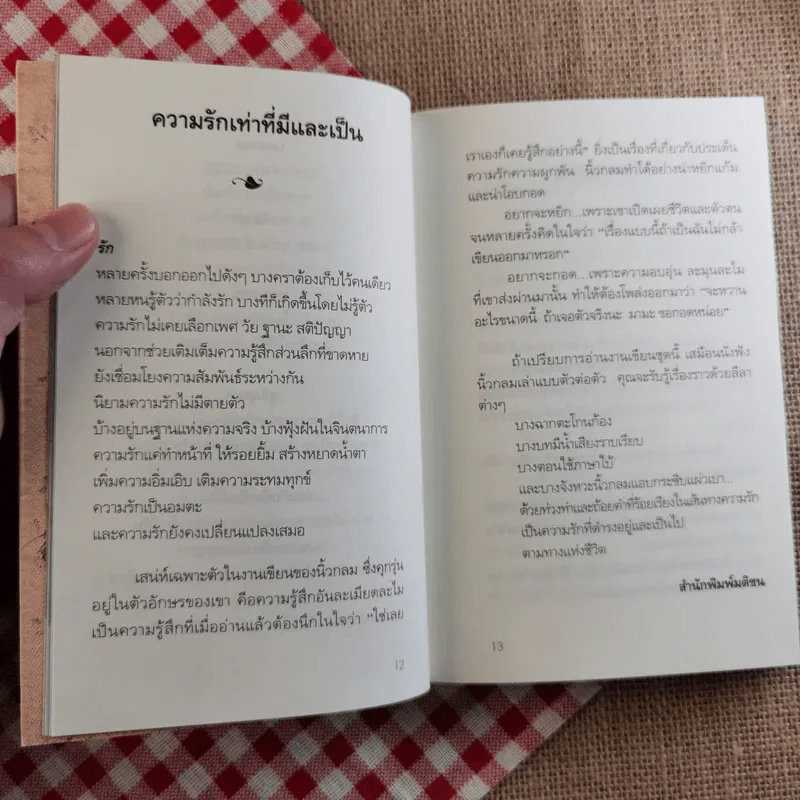 ความรักเท่าที่มีและเป็น
รัก
หลายครั้งบอกออกไปดังๆ บางคราต้องเก็บไว้คนเดียว
หลายหนรู้ตัวว่ากำลังรัก บางทีก็เกิดขึ้นโดยไม่รู้ตัว
ความรักไม่เคยเลือกเพศ วัย ฐานะ สติปัญญา
นอกจากช่วยเติมเต็มความรู้สึกส่วนลึกที่ขาดหาย
ยังเชื่อมโยงความสัมพันธ์ระหว่างกัน
นิยามความรักไม่มีตายตัว
บ้างอยู่บนฐานแห่งความจริง บ้างฟุ้งฝันในจินตนาการ
ความรักแค่ทำหน้าที่ ให้รอยยิ้ม สร้างหยาดน้ำตา
เพิ่มความอิ่มเอิบ เติมความระทมทุกข์
ความรักเป็นอมตะ
และความรักยังคงเปลี่ยนแปลงเสมอ
เสน่ห์เฉพาะตัวในงานเขียนของนิ้วกลม ซึ่งคุกรุ่น
อยู่ในตัวอักษรของเขา คือความรู้สึกอันละเมียดละไม
เป็นความรู้สึกที่เมื่ออ่านแล้วต้องนึกในใจว่า "ใช่เลย
12
เราเองก็เคยรู้สึกอย่างนี้" ยิ่งเป็นเรื่องที่เกี่ยวกับประเด็น
ความรักความผูกพัน นิ้วกลมทำได้อย่างน่าหยิกแก้ม
และน่าโอบกอด
อยากจะหยิก...เพราะเขาเปิดเผยชีวิตและตัวตน
จนหลายครั้งคิดในใจว่า "เรื่องแบบนี้ถ้าเป็นฉันไม่กล้า
เขียนออกมาหรอก"
อยากจะกอด...เพราะความอบอุ่น ละมุนละไม
ที่เขาส่งผ่านมานั้น ทำให้ต้องโพล่งออกมาว่า "จะหวาน
อะไรขนาดนี้ ถ้าเจอตัวจริงนะ มามะ ขอกอดหน่อย"
ถ้าเปรียบการอ่านงานเขียนชุดนี้ เสมือนนั่งฟัง
นิ้วกลมเล่าแบบตัวต่อตัว คุณจะรับรู้เรื่องราวด้วยลีลา
ต่างๆ
บางฉากตะโกนก้อง
บางบทมีน้ำเสียงราบเรียบ
บางตอนใช้ภาษาใบ้
และบางจังหวะนิ้วกลมแอบกระซิบแผ่วเบา...
ด้วยท่วงท่าและถ้อยคำที่ร้อยเรียงในเส้นทางความรัก
เป็นความรักที่ดำรงอยู่และเป็นไป
ตามทางแห่งชีวิต
สำนักพิมพ์มติชน
13